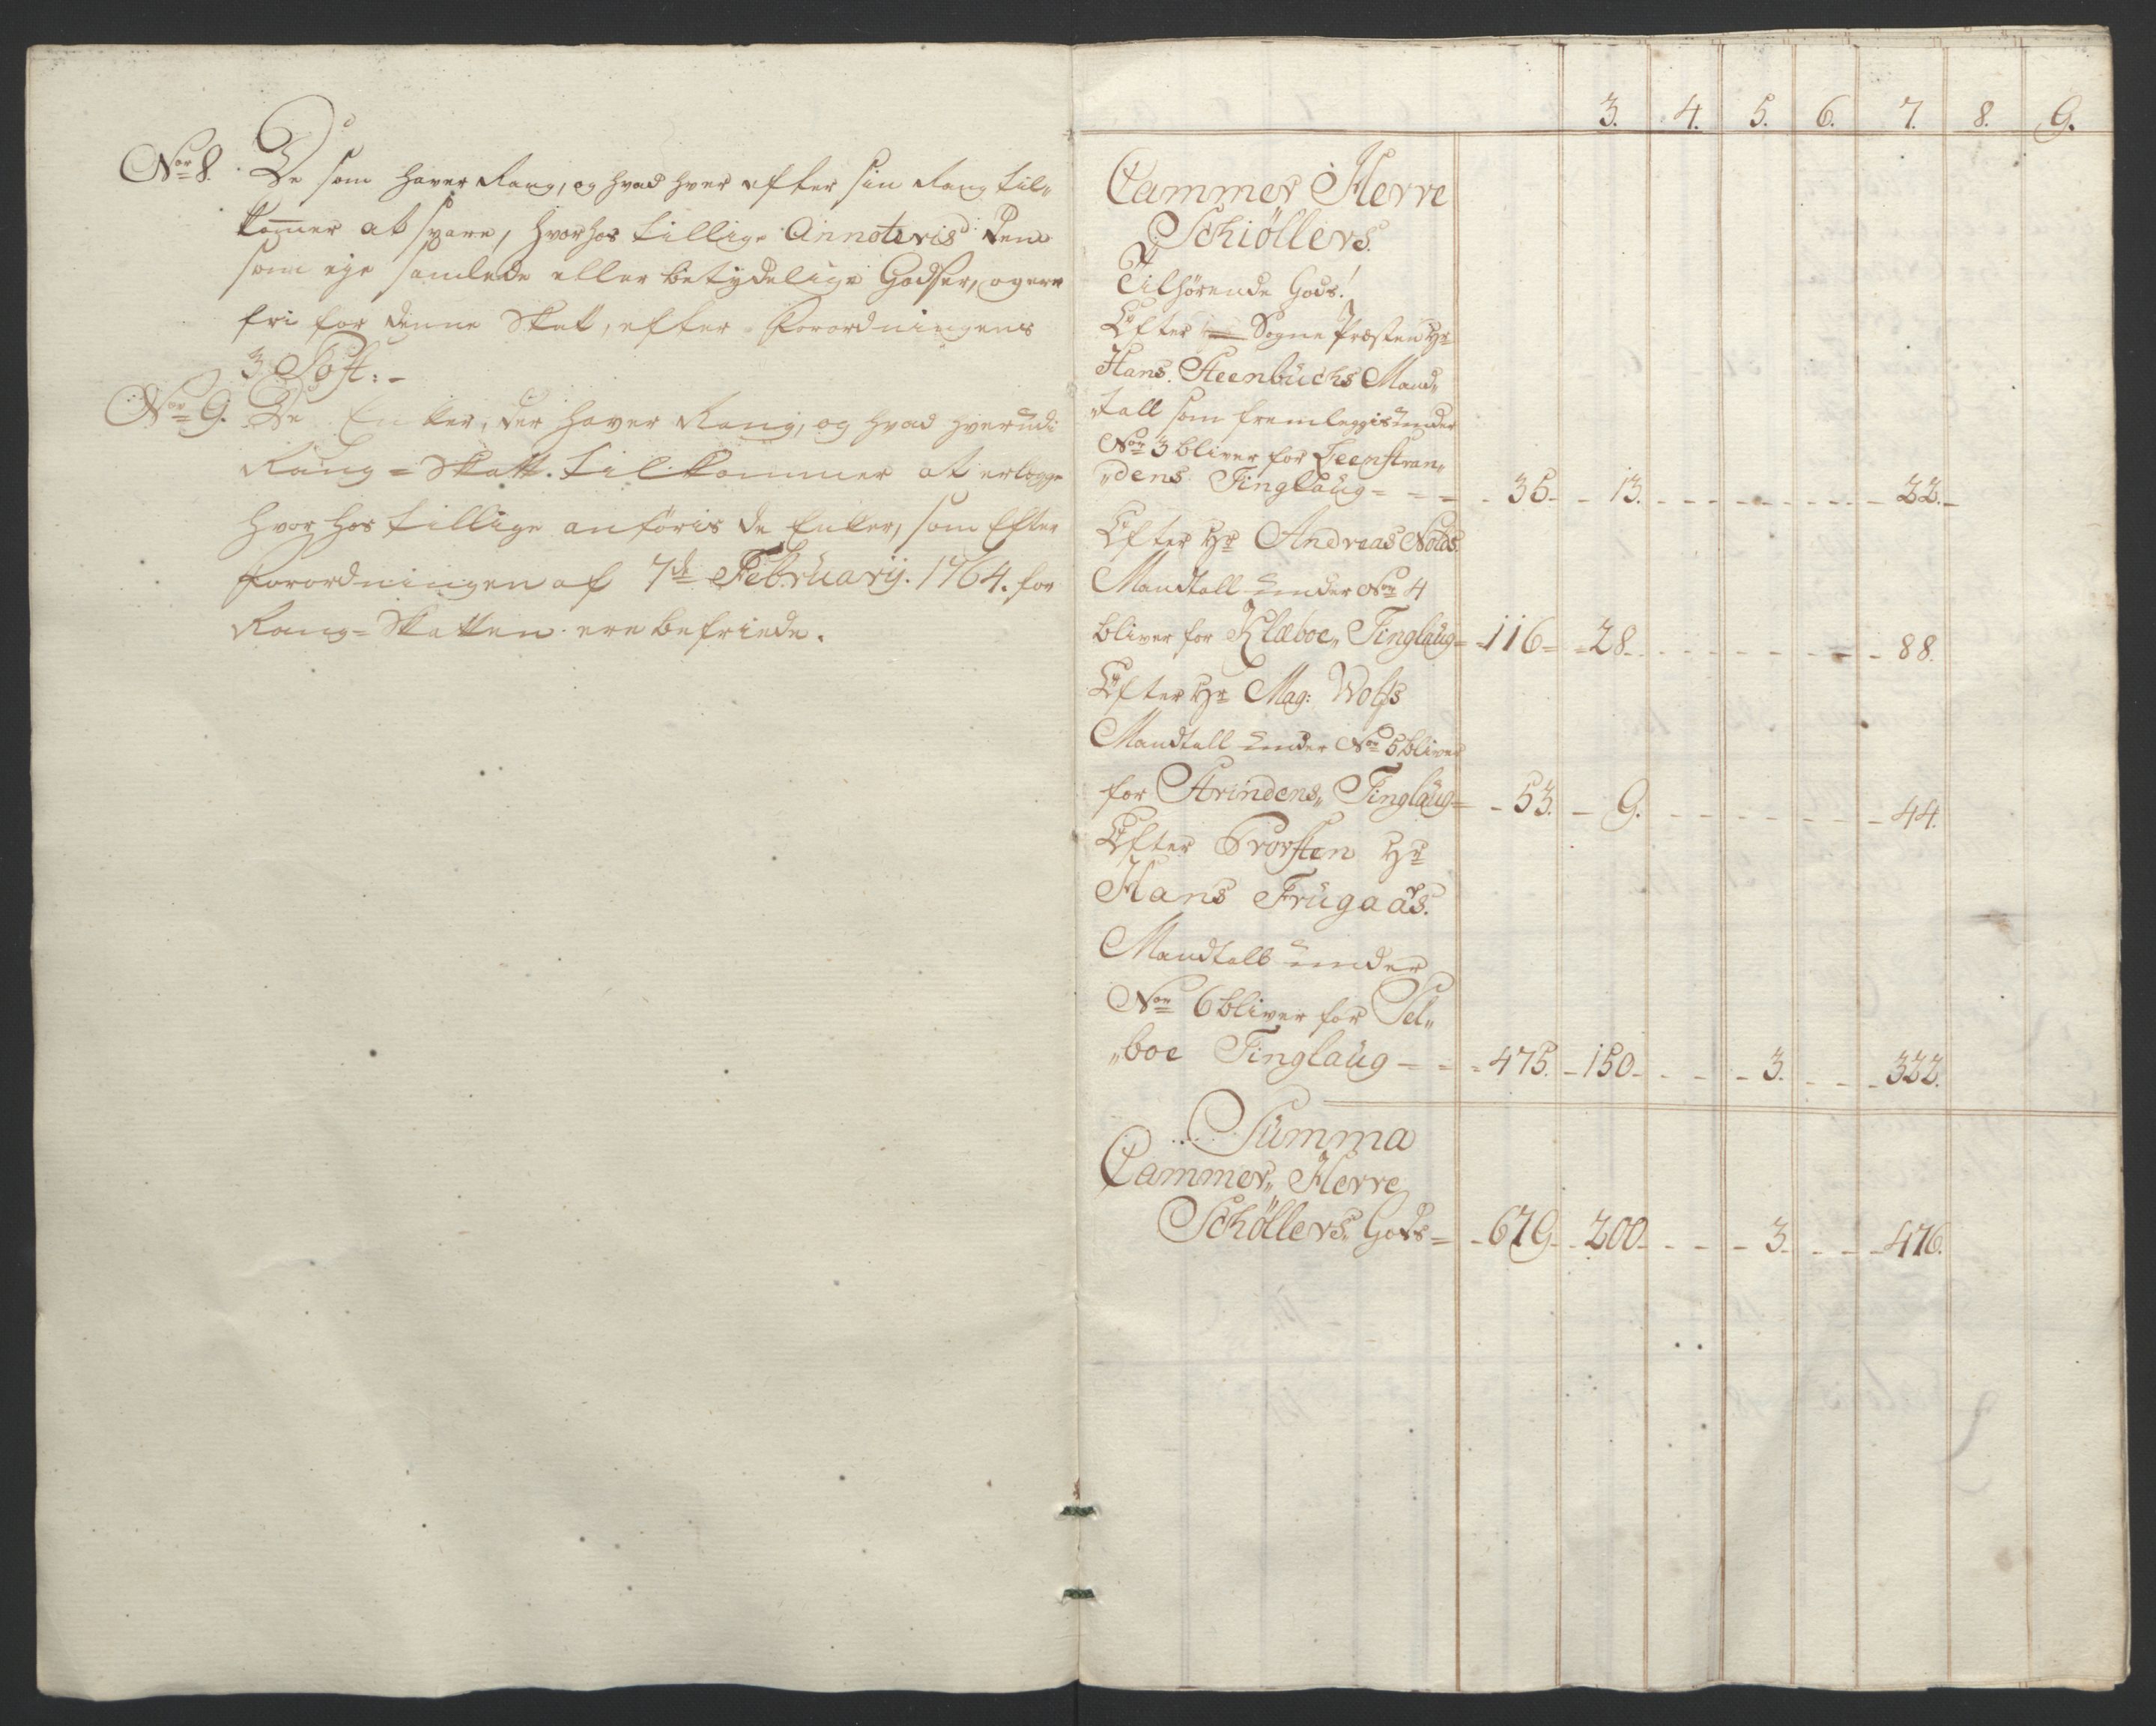 Nor 8. De som haver Rang, og hvad hver efter sin Rang til„
kommer at svare, hvorhos tillige Annoteris dem
som eje samlede eller betydelige Godser, og ere
fri for denne Skat, efter Forordningens
3 Post: -
Nor 9. De Enker, der haver Rang, og hvad hver udi
Rang = Skatt. tilkommer at erlegge
hvorhos tillige anføris de Enker, som Efter
Forordningen af 7de February. 1764. for
Rang = Skatten ere befriede.
3. 4. 5. 6. 7. 8. 9.
Cammer Herre
Schiöllers.
Tilhørende Gods!
Efter Sogne Præsten Hr
Hans Steenbuchs Mand„
„tall som fremleggis under
Nor 3 bliver for Leenstran„
„dens Tinglaug = - = - 35. - 13. - - - - - - - 22. -
Efter Hr Andreas Nolds.
Mandtall under Nor 4
bliver for Klæboe„ Tinglaug = - 116 = = 28. - - - - - - 88.
Efter Hr Mag: Wolfs
Mandtall under Nor 5 bliver
for Strindens„ Tinglaug = - 53. - 9. - - - - - - 44.
Efter Provsten Hr
Hans Frugaards.
Mandtall under
Nor 6 bliver for Sel„
„boe Tinglaug - = = 475. - 150. - - - 3. - - - 322.
Summa
Cammer„ Herre
Schöllers„ Gods = - 679. - 200. - - - 3. - - - 476.